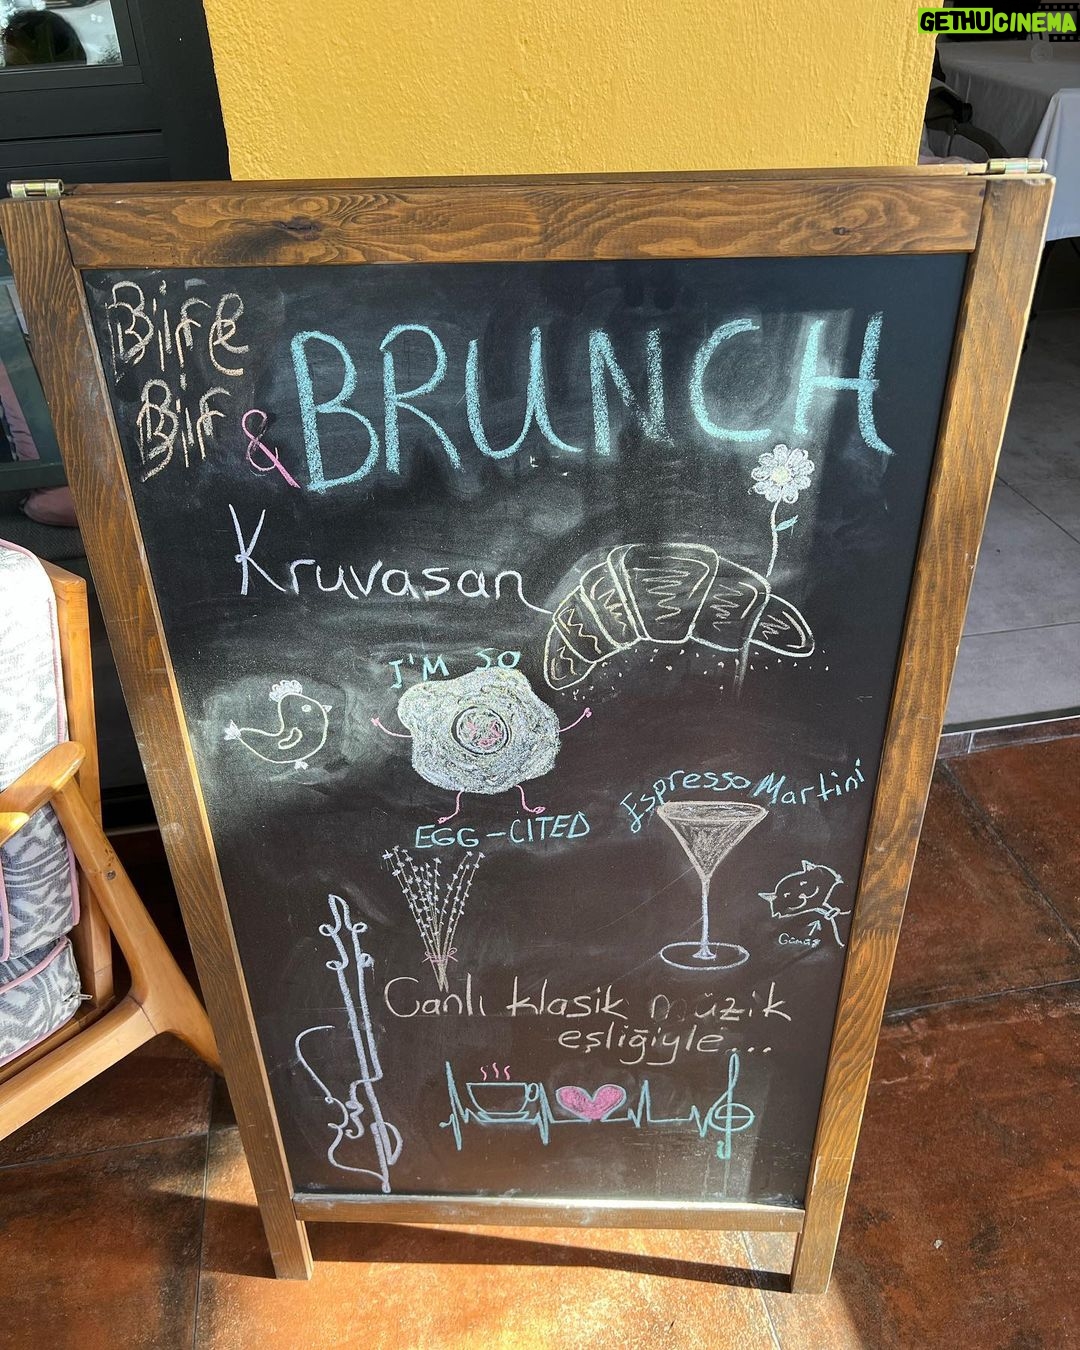 GETHUCINEMA
Bife
Bif & BRUNCH
Kruvasan
I'M SO
EGG-CITED
Espresso Martini
Canlı klasik müzik
eşliğiyle...